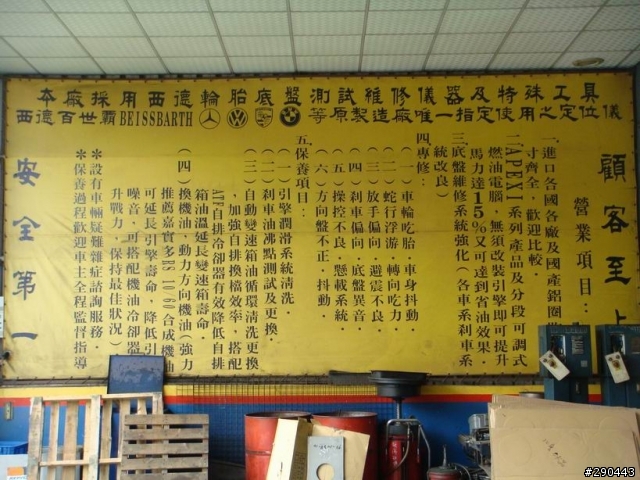 本廠採用西德輪胎底盤測試維修儀器及特殊工具
西德百世霸BEISSBARTH 等原製造廠唯一指定使用之定位儀
顧客至上
營業項目：
一.進口各國各廠及國產鋁圈
寸齊全．歡迎比較．
二.APEXI系列產品及分段可調式
燃油電腦，無須改裝引擎即可提升
馬力達15%又可達到省油效果．
三.底盤維修系統強化（各車系剎車系
統改良）
四.專修：
（一）車輪吃胎．車身抖動．
（二）蛇行浮游．轉向吃力．
（三）放手偏向．避震不良．
（四）剎車偏向．底盤異音．
（五）操控不良．懸載系統．
（六）方向盤不正．抖動．
五.保養項目：
（一）引擎潤滑系統清洗．
（二）剎車油沸點測試及更換．
（三）自動變速箱油循環清洗更換
，加強自排換檔效率，搭配
ATF自排冷卻器有效降低自排
箱油溫延長變速箱壽命．
（四）換機油，動力方向機油（強力
推薦嘉實多RS 10-60合成機油
可延長引擎壽命，降低引
噪音，可搭配機油冷卻器
升戰力，保持最佳狀況）
＊設有車輛疑難雜症諮詢服務
＊保養過程歡迎車主全程監督指導
安全第一
#290443